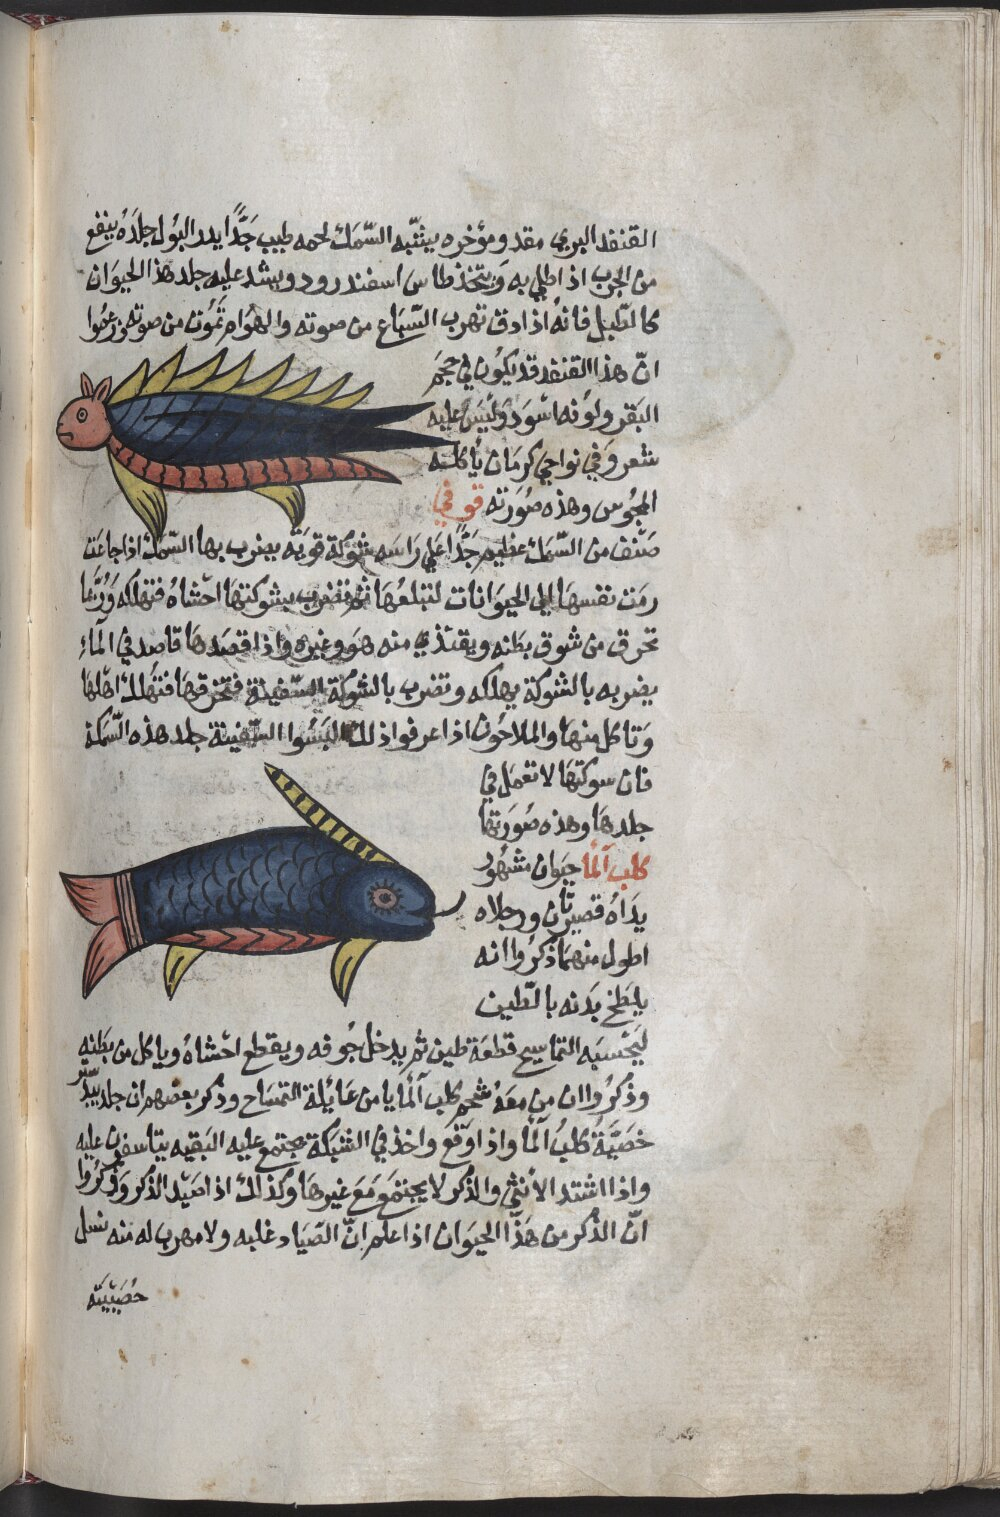 القنفد البري مقدو مؤخره يشبه السّمك لحمه طيب جدًّا يدر البول جلدَهُ ينفع
من الجرب اذ اطلي به وَيتخذ طاس اسفندرود ويشد عليه جلد هذ الحيوَان
كالطّبل فانهُ اذادق تهرب السّباع من صوته والهوَام تمُوت من صوته زعمُوا
انّ هذا القنفد قد يكُون في حجم
البَقر ولوَنه اسْوَد وَليَس عليه
شعر وَفي نواحي كرمَان يأكله
المجُوس وهذه صُورَته قوفي
صَنْف من السّمَك عظيم جَدًّا عَلي رَاسَه شوْكة قويَّه يضرب بها السّمك اذا جاعَت
رمَت نفسهَا الي الحيوَانات لتبلعُهَا ثم تضرب بشوكتهَا احْشاهُ فتهلكه وَرُبّما
تحرق من شوق بطَنه ويقتذي منه هوَ وغيره واذا قصَدهَا قاصد في الْمَاءِ
يضربه بالشوكة يهلكه وتضرب بالشوكة السّفينة فتخرقهَا فتهلك اهْلهَا
وَتاكل منهَا والملاحُون اذا عرفوا ذلك البَسُوا السّفينة جلد هذه السّمكة
فان سوكتهَا لا تعمَل في
جلدهَا وهذه صُورَتها
كلب آلمَا حيَوان مشهُور
يدَاهُ قصيرتَان ورجلاه
اطول منهمَا ذكرُوا انه
يلبطَخ بدَنه بالطّين
ليَحْسبَه التماسيح قطعَة طين ثم يدخل جُوفه ويقطع احْشاهُ وياكل من بطَنه
وذكرُوا ان من معَهُ شحم كلب آلمَا يامن عَايلة التمسَاح وذكر بعضهم ان جلد بيد ستر
خصَيَّةُ كلبُ آلمَا واذا وَقع واخذ في الشبَكة يجتمع عليه البَقيه يتاسفون عليه
واذا اشتد الاُنثي والذكر لا يجتمعَ مَع غيرهَا وكذلك اذا صَيد الذكر وَذكرُوا
انّ الذكر من هَذا الحيَوان اذا علم انّ الصّيَاد غلبه ولا مهرب له منه نسل
خُصَيْتيَه